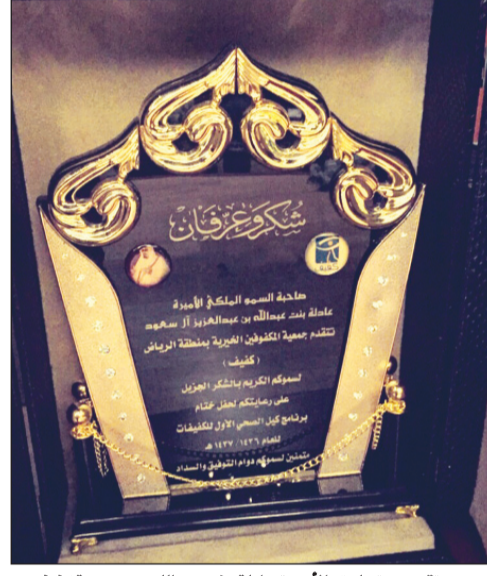 شكر وعرفان
كفيف
صاحبة السمو الملكي الأميرة
عادلة بنت عبدالله بن عبدالعزيز آل سعود
تتقدم جمعية المكفوفين الخيرية بمنطقة الرياض
( كفيف )
لسموكم الكريم بالشكر الجزيل
على رعايتكم لحفل ختام
برنامج كيل الصحي الأول للكفيفات
للعام ١٤٣٦ / ١٤٣٧ هـ
متمنين لسموكم دوام التوفيق والسداد